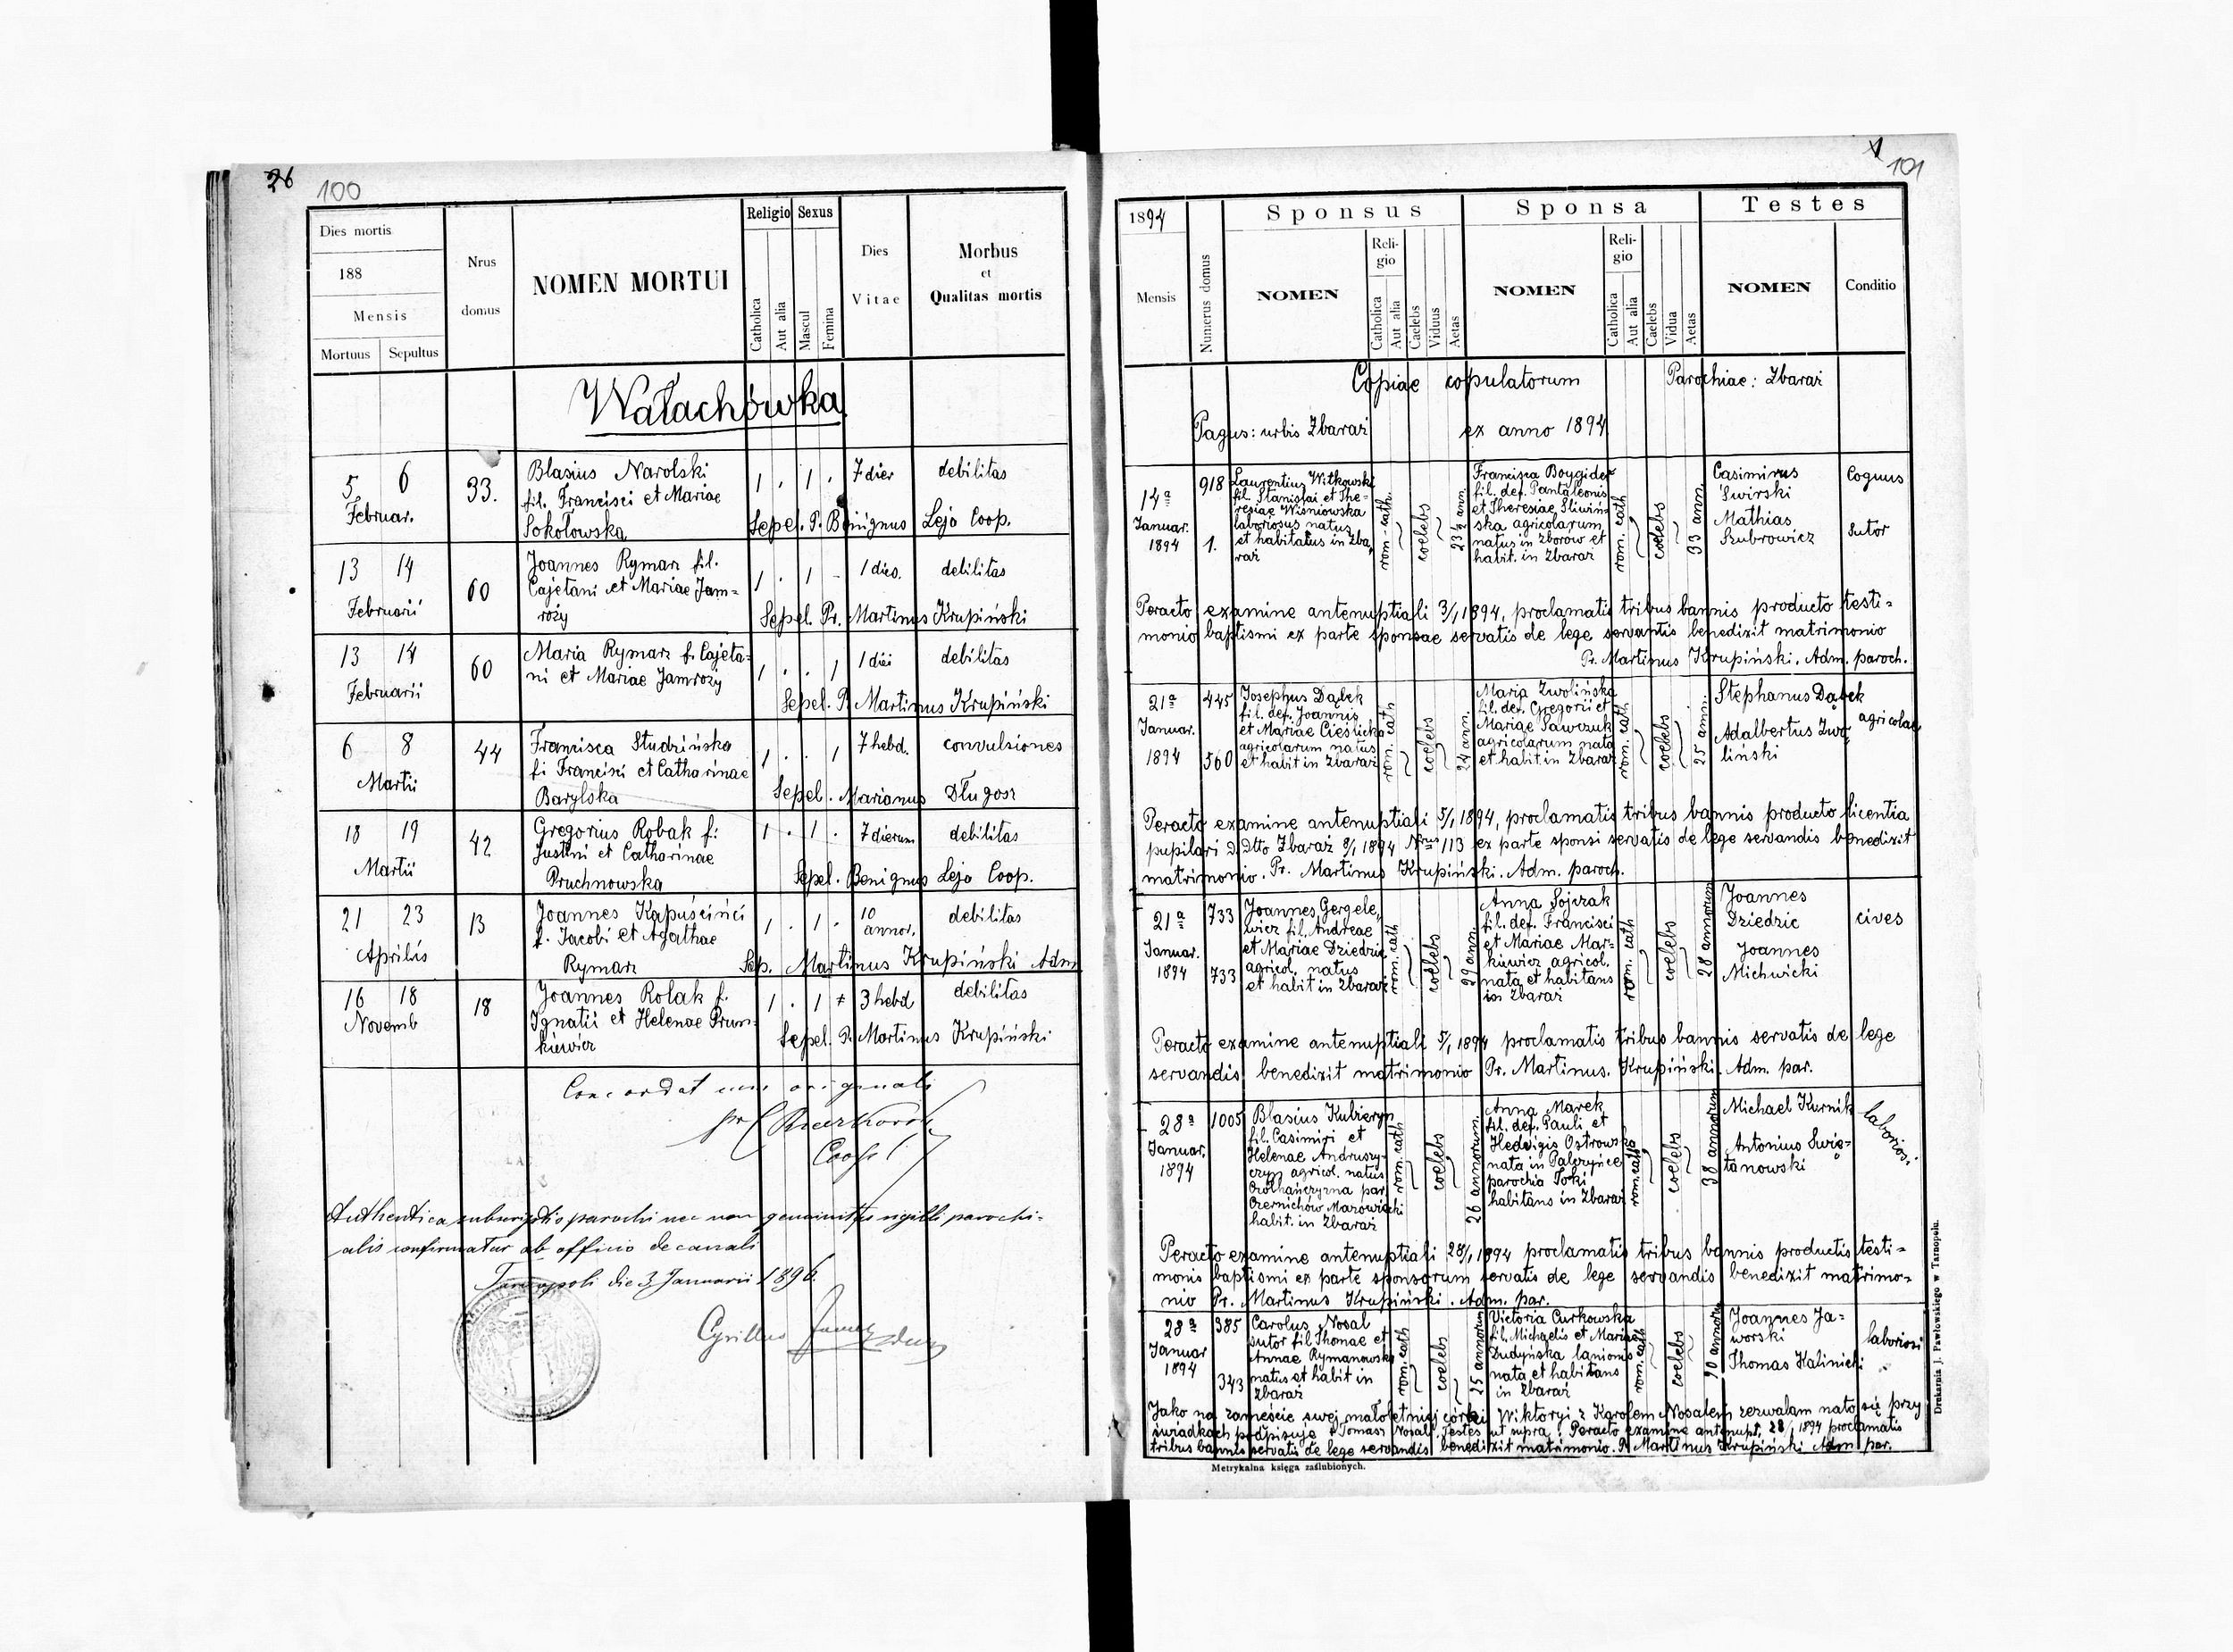 26
100
Dies mortis
188
Mensis
Mortuus Sepultus
Nrus
domus
NOMEN MORTUI
Religio Sexus
Catholica
Aut alia
Mascul
Femina
Dies
Vitae
Morbus
et
Qualitas mortis
Wałachówka
5 6
Februar.
33.
Blasius Narolski
fil. Francisci et Mariae
Sokołowska
1 . 1 .
7 dier
debilitas
Sepel. P. Benignus Lejo Coop.
13 14
Februarii
60
Joannes Rymarz fil.
Cajetani et Mariae Jam=
roży
1 . 1 -
1 dies.
debilitas
Sepel. Pr. Martinus Krupiński
13 14
Februarii
60
Maria Rymarz f. Cajeta=
ni et Mariae Jamroży
1 . . 1
1 diei
debilitas
Sepel. P. Martinus Krupiński
6 8
Martii
44
Francisca Studzińska
fi Francisci et Catharinae
Barylska
1 . . 1
7 hebd.
convulsiones
Sepel. Marianus Długosz
18 19
Martii
42
Gregorius Robak f:
Justini et Catharinae
Pruchnowska
1 . 1 .
7 dierum
debilitas
Sepel. Benignus Lejo Coop.
21 23
Aprilis
13
Joannes Kapuściński
f. Jacobi et Agathae
Rymarz
1 . 1 .
10
annor.
debilitas
Sep. Martinus Krupiński Adm
16 18
Novemb
18
Joannes Rolak f.
Ignatii et Helenae Prum=
kiewicz
1 . 1 +
3 hebd
debilitas
Sepel. P. Martinus Krupiński
Concordat cum originali
Coop
Authentica subscriptio parochi nec non genuinitas sigilli parochi-
alis confirmatur ab officio decanali
Tarnopoli die 3 Januarii 1896.
Cyrillus
1
101
1894
Mensis
Numerus domus
Sponsus
NOMEN
Reli-
gio
Catholica
Aut alia
Caelebs
Viduus
Aetas
Sponsa
NOMEN
Reli-
gio
Catholica
Aut alia
Caelebs
Vidua
Aetas
Testes
NOMEN
Conditio
Copiae copulatorum Parochiae: Zbaraż
Pagus: urbis Zbaraż ex anno 1894
14a
Januar.
1894
918
1.
Laurentius Witkowski
fil. Stanislai et The=
resiae Wiśniowska
laboriosus natus
et habitatus in Zba,
raż
rom-cath.
coelebs
23½ ann.
Francisca Boygider
fil. def. Pantaleonis
et Theresiae Śliwiń
ska agricolarum
natus in Zborów et
habit. in Zbaraż
rom. cath
coelebs
33 ann.
Casimirus
Świrski
Mathias
Szubrowicz
Coquus
sutor
Peracto examine antenuptiali 3/1 1894, proclamatis tribus bannis producto testi=
monio baptismi ex parte sponsae servatis de lege servantis benedixit matrimonio
Pr. Martinus Krupiński. Adm. paroch.
21a
Januar.
1894
445
560
Josephus Dąbek
fil. def. Joannis
et Mariae Cieślicka
agricolarum natus
et habit in Zbaraż
rom. cath
coelebs
24 ann.
Maria Zwolińska
fil. def. Gregorii et
Mariae Sawczuk
agricolarum nata
et habit. in Zbaraż
rom. cath
coelebs
25 ann.
Stephanus Dąbek
Adalbertus Zwo
liński
agricolae
Peracto examine antenuptiali 5/1 1894, proclamatis tribus bannis producto licentia
pupilari d. dtto Zbaraż 8/1 1894 Nrus 113 ex parte sponsi servatis de lege servandis benedixit
matrimonio. Pr. Martinus Krupiński. Adm. paroch.
21a
Januar.
1894
733
733
Joannes Gergele,
wicz fil. Andreae
et Mariae Dziedzic
agricol. natus
et habit in Zbaraż
rom. cath
coelebs
29 ann.
Anna Sojczak
fil. def. Francisci
et Mariae Mar=
kiewicz agricol.
nata et habitans
in Zbaraż
rom. cath
coelebs
28 annorum
Joannes
Dziedzic
Joannes
Michwicki
cives
Peracto examine antenuptiali 5/1 1894 proclamatis tribus bannis servatis de lege
servandis benedixit matrimonio Pr. Martinus. Krupiński. Adm. par.
28a
Januar.
1894
1005
Blasius Kubieryn
fil. Casimiri et
Helenae Andruszy-
czyn agricol. natus
par
Czernichów Mazowiecki
habit. in Zbaraż
rom. cath
coelebs
26 annorum.
Anna Marek
fil. def. Pauli et
Hedvigis Ostrowska
nata in Palczyńce
parochia Toki
habitans in Zbaraż
rom. cath
coelebs
38 annorum
Michael Kurnik
Antonius Świę=
tanowski
laboriosi
Peracto examine antenuptiali 28/1 1894 proclamatis tribus bannis productis testi=
monis baptismi ex parte sponsorum servatis de lege servandis benedixit matrimo=
nio Pr. Martinus Krupiński. Adm. par.
28a
Januar
1894
385
343
Carolus Nosal
sutor fil Thomae et
Annae Rymanowska
natus et habit in
Zbaraż
rom. cath
coelebs
25 annorum
Victoria Curkowska
fil. Michaelis et Mariae
Dudyńska lanionis
nata et habitans
in Zbaraż
rom. cath
coelebs
20 annorum
Joannes Ja=
worski
Thomas Kalinicki
laboriosi
Jako na zamęście swej małoletniej córki Wiktoryi z Karolem Nosalem zezwalam na to się przy
świadkach podpisuję Tomasz Nosal. Testes ut supra. Peracto examine antenupt. 28/1 1894 proclamatis
tribus bannis servatis de lege servandis benedixit matrimonio. P. Martinus Krupiński Adm par.
Metrykalna księga zaślubionych.
Drukarnia J. Pawłowskiego w Tarnopolu.